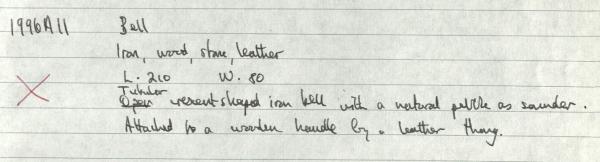 1996A11 Bell
Iron, wood, stone, leather
L. 210 W. 80
Tubular
Open crescent shaped iron bell with a natural pebble as sounder.
Attached to a wooden handle by a leather thong.